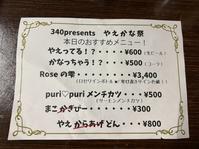 340presents やえかな祭
本日のおすすめメニュー！
やえってる！？・・・¥600 (生ビール)
かなっちゃう！？・・・¥500 (コーラ)
Roseの雫・・・・・・・¥3,400
puri♡puri メンチカツ・・・¥500
(サーモンメンチカツ)
まこかきぴー・・・¥300
やえ からあげどん・・・¥800